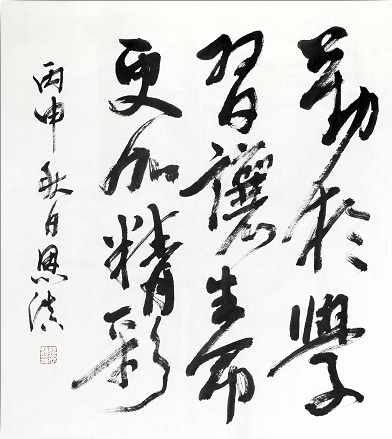 勤於學
習讓生命
更加精彩
丙申秋月恩溓